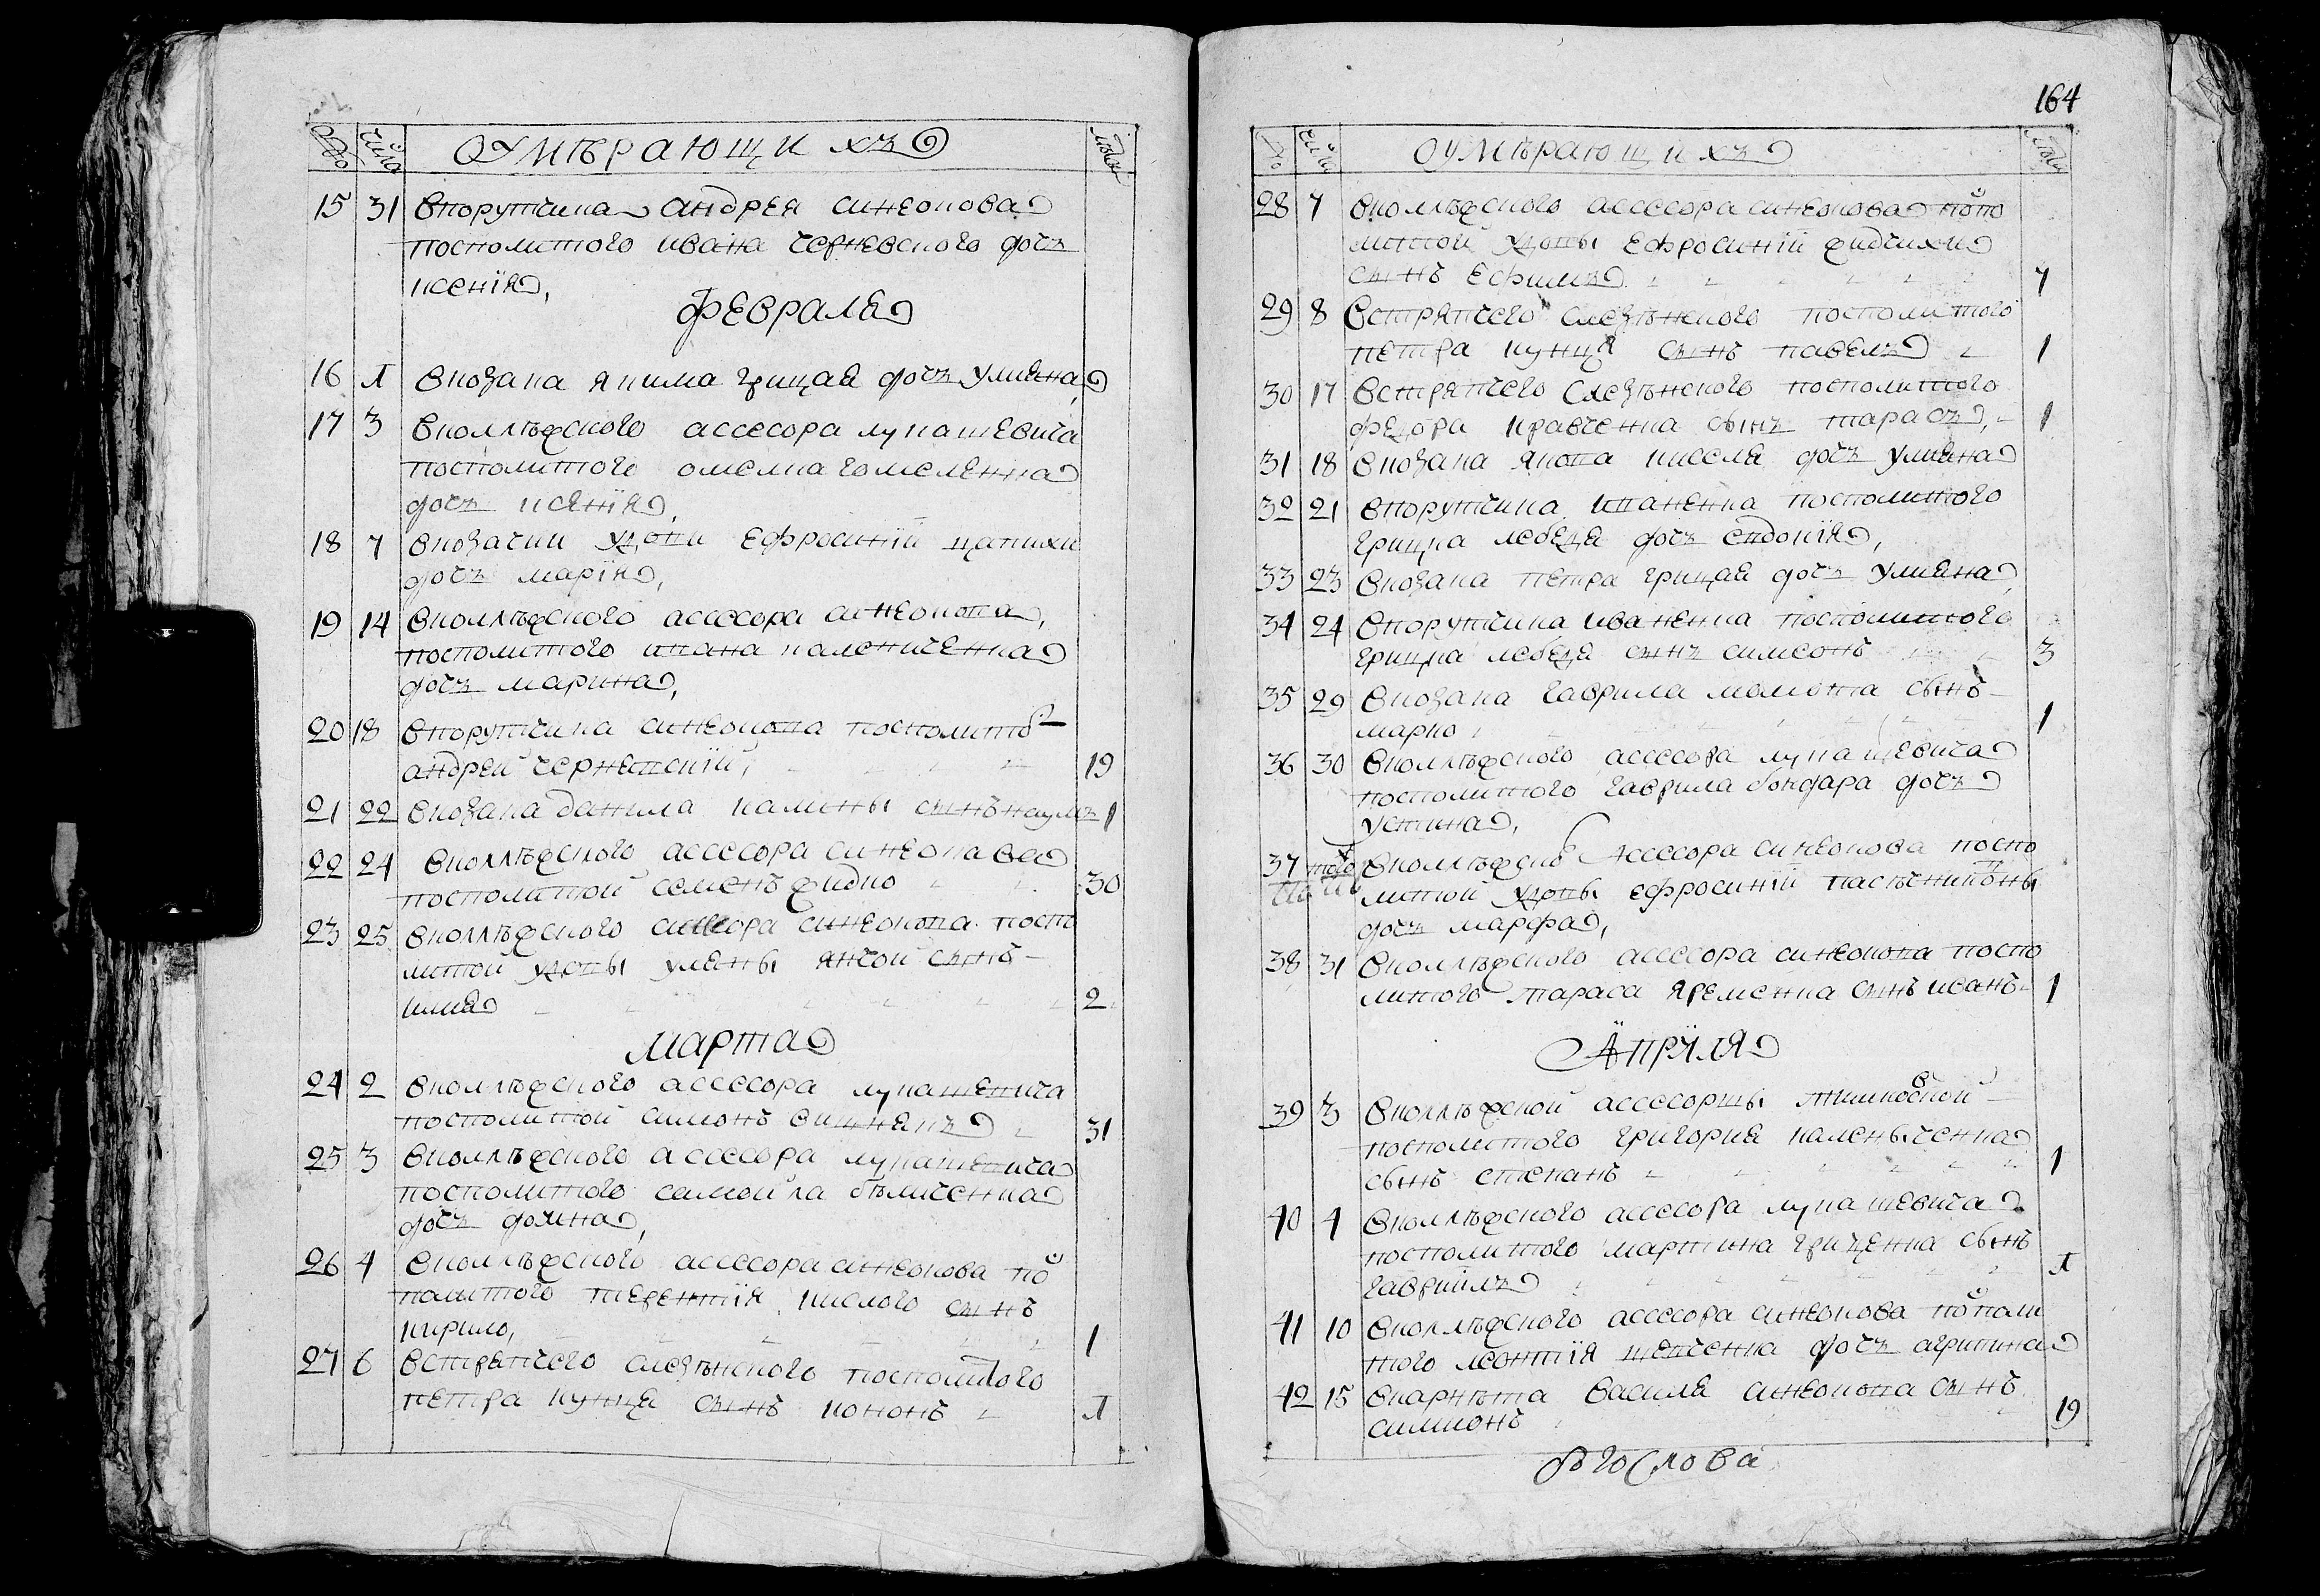 числа О УМѢРАЮЩИХЪ
15 31 Впорутчика андрея симонова
посполитого ивана черневского дочъ
ксенїя,
февраля
16 1 Вкозака якима грицая дочъ улияна,
17 3 Вколлѣжского ассесора лукашевича
посполитого омелка гомеленка
дочъ ксенїя,
18 7 Вкозачки удови ефросинїи
дочъ марїя,
19 14 Вколлѣжского асессора симонова,
посполитого ивана калениченка
дочъ марина,
20 18 Впорутчика симонова посполито
андрей черневскїй, 19
21 22 Вкозака данила калины сынъ наумъ 1
22 24 Вколлѣжского асессора симонова
посполитой семенъ дидко 30
23 25 Вколлѣжского асессора симонова поспо
литой удовы уляны янчой сынъ
илия 2
марта
24 2 Вколлѣжского асессора лукашевича
посполитой симонъ вишнякъ 31
25 3 Вколлѣжского асессора лукашевича
посполитого самойла бѣличенка
дочъ домна,
26 4 Вколлѣжского асессора симонова пос
политого терентїя кислого сынъ
кирило, 1
27 6 Встряпчего слезѣнского посполитого
петра кунця сынъ кононъ 1
164
числа О УМѢРАЮЩИХЪ
28 7 Вколлѣжского асессора симонова поспо
литой удовы ефросинїй дидчихи
сынъ ефимъ 7
29 8 Встряпчего слезѣнского посполитого
петра кунця сынъ павелъ 1
30 17 Встряпчего слезѣнского посполитого
федора кравченка сынъ тарасъ, 1
31 18 Вкозака якова киселя дочъ улияна
32 21 Впорутчика иваненка посполитого
грицка лебедя дочъ евдокїя,
33 23 Вкозака петра грицая дочъ улияна,
34 24 Впорутчика иваненка посполитого
грицка лебедя сынъ симеонъ 3
35 29 Вкозака гаврила мамонта сынъ
марко 1
36 30 Вколлѣжского асессора лукашевича
посполитого гаврила бондара дочъ
устина,
37 Вколлѣжско асессора симонова поспо
литой удовы ефросинїй пасѣчниковны
дочъ марфа,
38 31 Вколлѣжского асессора симонова поспо
литого тараса яременка сынъ иванъ 1
Апрїля
39 3 Вколлѣжской асессоршы
посполитого григория каленыченка
сынъ степанъ 1
40 4 Вколлѣжского асессора лукашевича
посполитого мартина гриценка сынъ
гаврїилъ 1
41 10 Вколлѣжского асессора симонова посполи
того леонтїя шевченка дочъ агрипина
42 15 Вкорнѣта василя симонова сынъ
симионъ 19